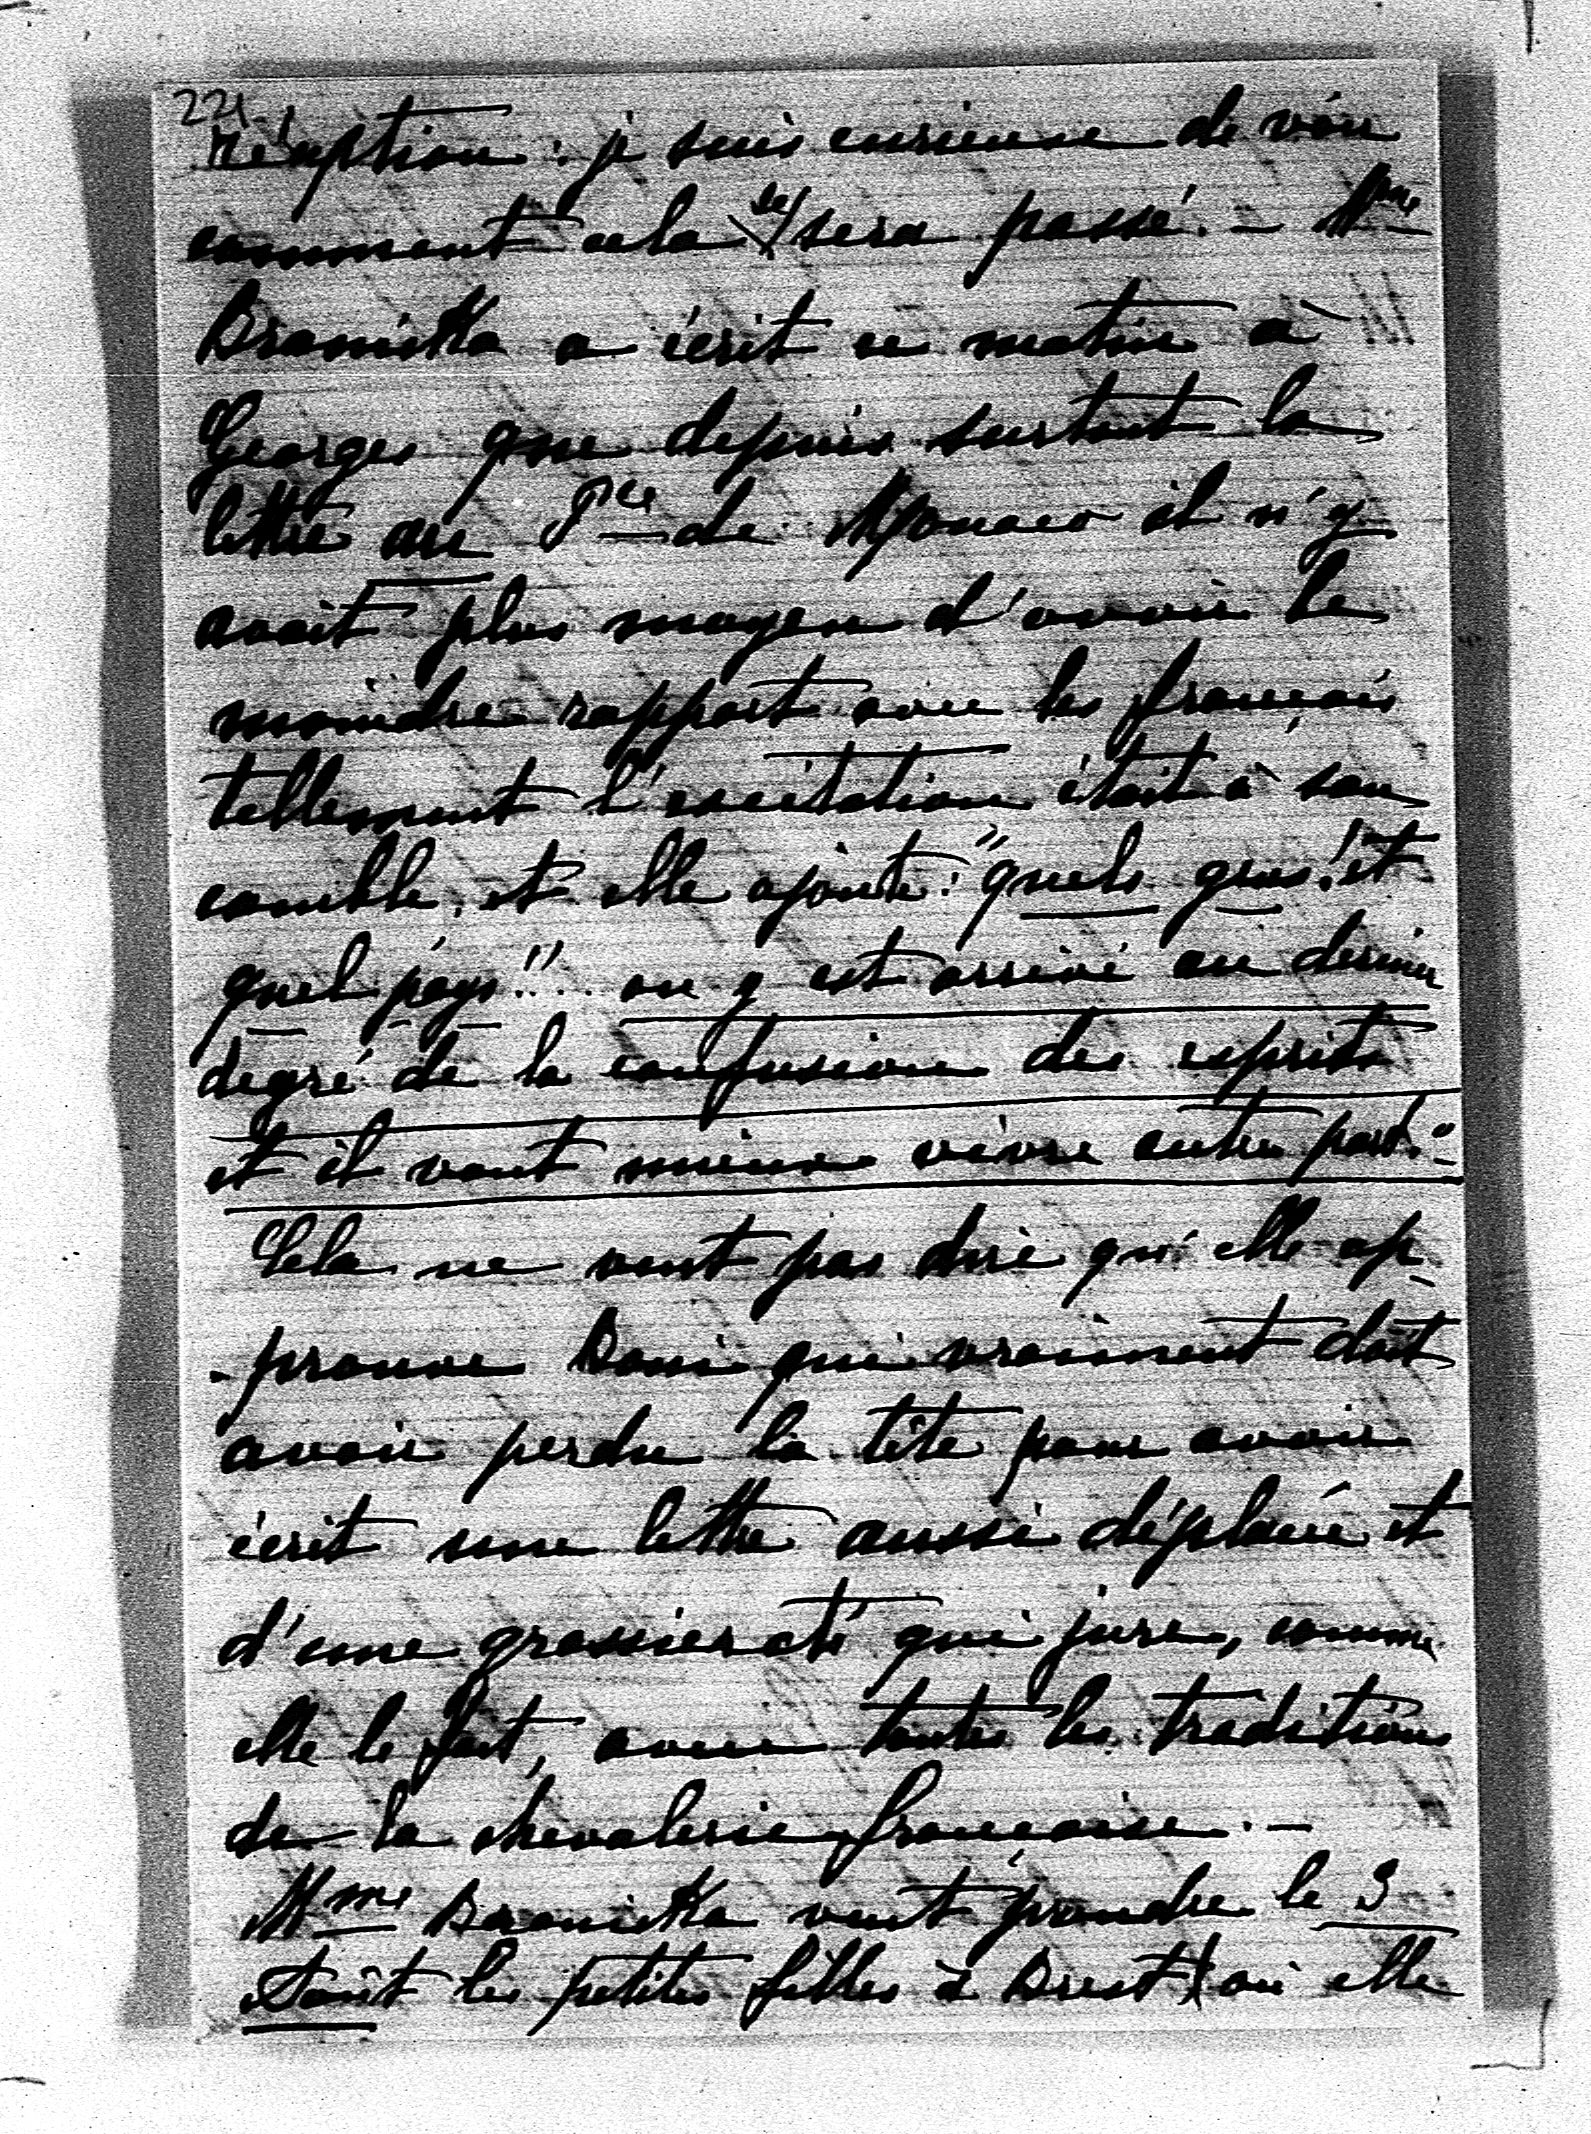 221.
réception : je suis curieuse de voir
comment cela se sera passé. — Mme
Branicka a écrit ce matin à
Georges que depuis surtout la
lettre au Pce de Monaco il n'y
avait plus moyen d'avoir le
moindre rapport avec les français
tellement l'excitation était à son
comble, et elle ajoute : "quels gens! et
quel pays!" on y est arrivé au dernier
degré de la confusion des esprits
et il vaut mieux vivre autre part."—
Cela ne veut pas dire qu'elle ap-
-prouve Boni qui vraiment doit
avoir perdu la tête pour avoir
écrit une lettre aussi déplacée et
d'une grossiereté qui jure, comme
elle le fait, avec toutes les traditions
de la chevalerie française. —
Mme Branicka veut prendre le 3
Août les petites filles à Brest où elle